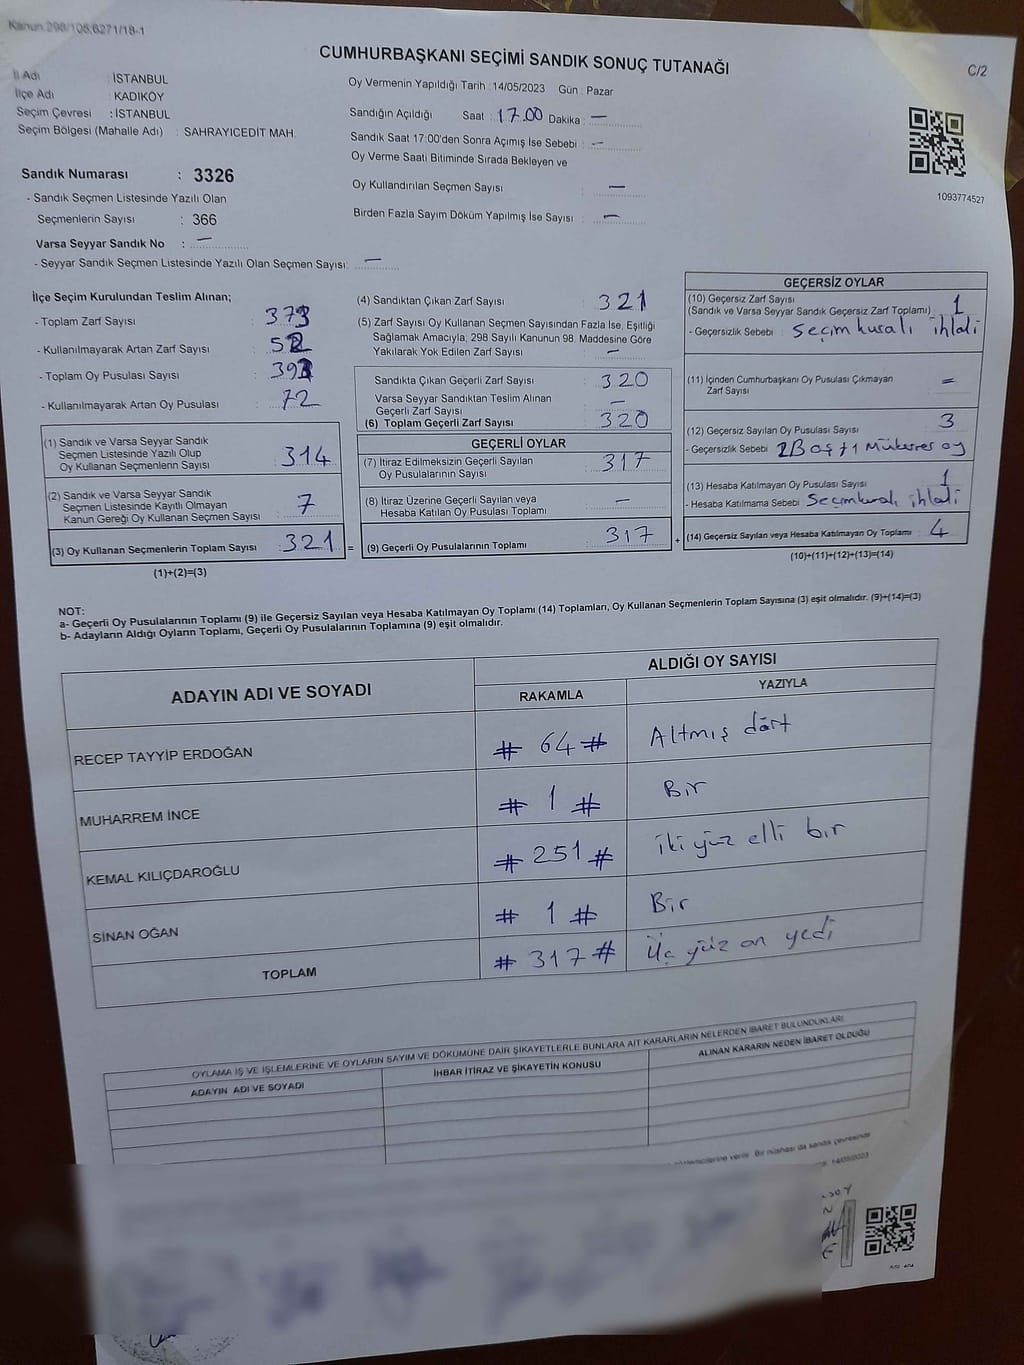 Kanun 298/105,6271/18-1
CUMHURBAŞKANI SEÇİMİ SANDIK SONUÇ TUTANAĞI
C/2
İl Adı : İSTANBUL
İlçe Adı : KADIKÖY
Seçim Çevresi : İSTANBUL
Seçim Bölgesi (Mahalle Adı) : SAHRAYICEDİT MAH.
Sandık Numarası : 3326
- Sandık Seçmen Listesinde Yazılı Olan
Seçmenlerin Sayısı : 366
Varsa Seyyar Sandık No : —
- Seyyar Sandık Seçmen Listesinde Yazılı Olan Seçmen Sayısı: —
Oy Vermenin Yapıldığı Tarih :14/05/2023 Gün : Pazar
Sandığın Açıldığı Saat : 17.00 Dakika : —
Sandık Saat 17:00'den Sonra Açımış İse Sebebi : —
Oy Verme Saati Bitiminde Sırada Bekleyen ve
Oy Kullandırılan Seçmen Sayısı : —
Birden Fazla Sayım Döküm Yapılmış İse Sayısı : —
1093774527
İlçe Seçim Kurulundan Teslim Alınan;
- Toplam Zarf Sayısı : 373
- Kullanılmayarak Artan Zarf Sayısı : 52
- Toplam Oy Pusulası Sayısı : 393
- Kullanılmayarak Artan Oy Pusulası : 72
(1) Sandık ve Varsa Seyyar Sandık
Seçmen Listesinde Yazılı Olup
Oy Kullanan Seçmenlerin Sayısı : 314
(2) Sandık ve Varsa Seyyar Sandık
Seçmen Listesinde Kayıtlı Olmayan
Kanun Gereği Oy Kullanan Seçmen Sayısı : 7
(3) Oy Kullanan Seçmenlerin Toplam Sayısı : 321 =
(1)+(2)=(3)
(4) Sandıktan Çıkan Zarf Sayısı : 321
(5) Zarf Sayısı Oy Kullanan Seçmen Sayısından Fazla İse, Eşitliği
Sağlamak Amacıyla; 298 Sayılı Kanunun 98. Maddesine Göre
Yakılarak Yok Edilen Zarf Sayısı : —
Sandıkta Çıkan Geçerli Zarf Sayısı : 320
Varsa Seyyar Sandıktan Teslim Alınan
Geçerli Zarf Sayısı : —
(6) Toplam Geçerli Zarf Sayısı : 320
GEÇERLİ OYLAR
(7) İtiraz Edilmeksizin Geçerli Sayılan
Oy Pusulalarının Sayısı : 317
(8) İtiraz Üzerine Geçerli Sayılan veya
Hesaba Katılan Oy Pusulası Toplamı : —
(9) Geçerli Oy Pusulalarının Toplamı : 317 +
GEÇERSİZ OYLAR
(10) Geçersiz Zarf Sayısı
(Sandık ve Varsa Seyyar Sandık Geçersiz Zarf Toplamı) : 1
- Geçersizlik Sebebi : Seçim kuralı ihlali
(11) İçinden Cumhurbaşkanı Oy Pusulası Çıkmayan
Zarf Sayısı : —
(12) Geçersiz Sayılan Oy Pusulası Sayısı : 3
- Geçersizlik Sebebi : 2 Boş +1 Mükerrer oy
(13) Hesaba Katılmayan Oy Pusulası Sayısı : 1
- Hesaba Katılmama Sebebi : Seçim kuralı ihlali
(14) Geçersiz Sayılan veya Hesaba Katılmayan Oy Toplamı : 4
(10)+(11)+(12)+(13)=(14)
NOT:
a- Geçerli Oy Pusulalarının Toplamı (9) ile Geçersiz Sayılan veya Hesaba Katılmayan Oy Toplamı (14) Toplamları, Oy Kullanan Seçmenlerin Toplam Sayısına (3) eşit olmalıdır. (9)+(14)=(3)
b- Adayların Aldığı Oyların Toplamı, Geçerli Oy Pusulalarının Toplamına (9) eşit olmalıdır.
ADAYIN ADI VE SOYADI
ALDIĞI OY SAYISI
RAKAMLA YAZIYLA
RECEP TAYYİP ERDOĞAN # 64 # Altmış dört
MUHARREM İNCE # 1 # Bir
KEMAL KILIÇDAROĞLU # 251 # iki yüz elli bir
SİNAN OĞAN # 1 # Bir
TOPLAM # 317 # Üç yüz on yedi
OYLAMA İŞ VE İŞLEMLERİNE VE OYLARIN SAYIM VE DÖKÜMÜNE DAİR ŞİKAYETLERLE BUNLARA AİT KARARLARIN NELERDEN İBARET BULUNDUKLARI
ADAYIN ADI VE SOYADI İHBAR İTİRAZ VE ŞİKAYETİN KONUSU ALINAN KARARIN NEDEN İBARET OLDUĞU
verilir. Bir nüshası da sandık çevresinde
14/05/2023